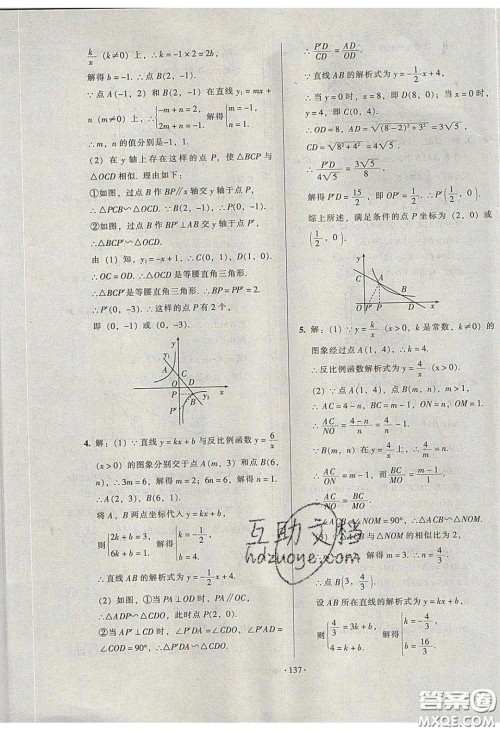 k/x (k≠0) 上,∴k=-1×2=2b,
解得 b=-1. ∴点 B(2,-1).
∵点 A(-1,2) 和 B(2,-1) 在直线 y₁=mx+
n (m≠0) 上,∴{-m+n=2, 2m+n=-1. 解得{m=-1, n=1.
∴m,n 的值分别是-1,1.
(2) 在 y 轴上存在这样的点 P,使△BCP 与
△OCD 相似. 理由如下:
①如图,过点 B 作 BP∥x 轴交 y 轴于点 P,
∴△PCB∽△OCD. ∵B(2,-1),∴P(0,-1).
②如图,过点 B 作 BP′⊥AB 交 y 轴于点 P′,
∴△BCP′∽△OCD.
由 (1) 知,y₁=-x+1,∴C(0,1),D(1,0).
∴OC=OD. ∴△OCD 是等腰直角三角形.
∴△BCP′是等腰直角三角形. ∴BP=PP′=2.
∴P′(0,-3). ∴这样的点 P 有 2 个,
即 (0,-1) 或 (0,-3).
y
y₁
A
C
O
D
x
P
B
P′
4. 解:(1) ∵直线 y=kx+b 与反比例函数 y=6/x
(x>0) 的图象分别交于点 A(m,3) 和点 B(6,
n),∴3m=6,解得 m=2;6n=6,解得 n=1.
∴A(2,3),B(6,1).
将 A,B 两点坐标代入 y=kx+b,
则{2k+b=3, 6k+b=1. 解得{k=-1/2, b=4.
∴直线 AB 的解析式为 y=-1/2x+4.
(2) 如图,①当 PA⊥OD 时,∵PA∥OC,
∴△ADP∽△CDO,此时点 P(2,0).
②当 AP′⊥CD 时,∠P′DA=∠CDO,∠P′AD=
∠COD=90°,∴△P′DA∽△CDO.
∴P′D/CD=AD/OD.
∵直线 AB 的解析式为 y=-1/2x+4,
∴当 y=0 时,x=8,即 D(8,0);当 x=0 时,
y=4,即 C(0,4).
∴OD=8,AD=√((8-2)²+3²)=3√5,
CD=√(8²+4²)=4√5.
∴P′D/4√5=3√5/8,
解得 P′D=15/2,即 OP′=1/2,∴P′(1/2,0).
综上所述,满足条件的点 P 坐标为 (2,0) 或
(1/2,0).
y
C
A
B
O
P′
P
D
x
5. 解:(1) ∵y=k/x (x>0,k 是常数,k≠0) 的
图象经过点 A(1,4),∴k=4.
∴反比例函数解析式为 y=4/x (x>0).
(2) ∵点 A(1,4),点 B(m,n),m>1,
∴AC=4-n,BC=m-1,ON=n,OM=1.
∴AC/NO=(4-n)/n=4/n-1.
∵B(m,n) 在 y=4/x 上,∴4/n=m.
∴AC/NO=m-1. 而BC/MO=(m-1)/1,
∴AC/NO=BC/MO.
∵∠ACB=∠NOM=90°,∴△ACB∽△NOM.
(3) ∵△ACB 与△NOM 的相似比为 2,
∴m-1=2. 解得 m=3. ∴n=4/3.
∴点 B(3,4/3).
设 AB 所在直线的解析式为 y=kx+b,
则{4/3=3k+b, 4=k+b. 解得{k=-4/3, b=16/3.
互助文档
hdzuoye.com
· 137 ·
答案圈
MXQE.COM